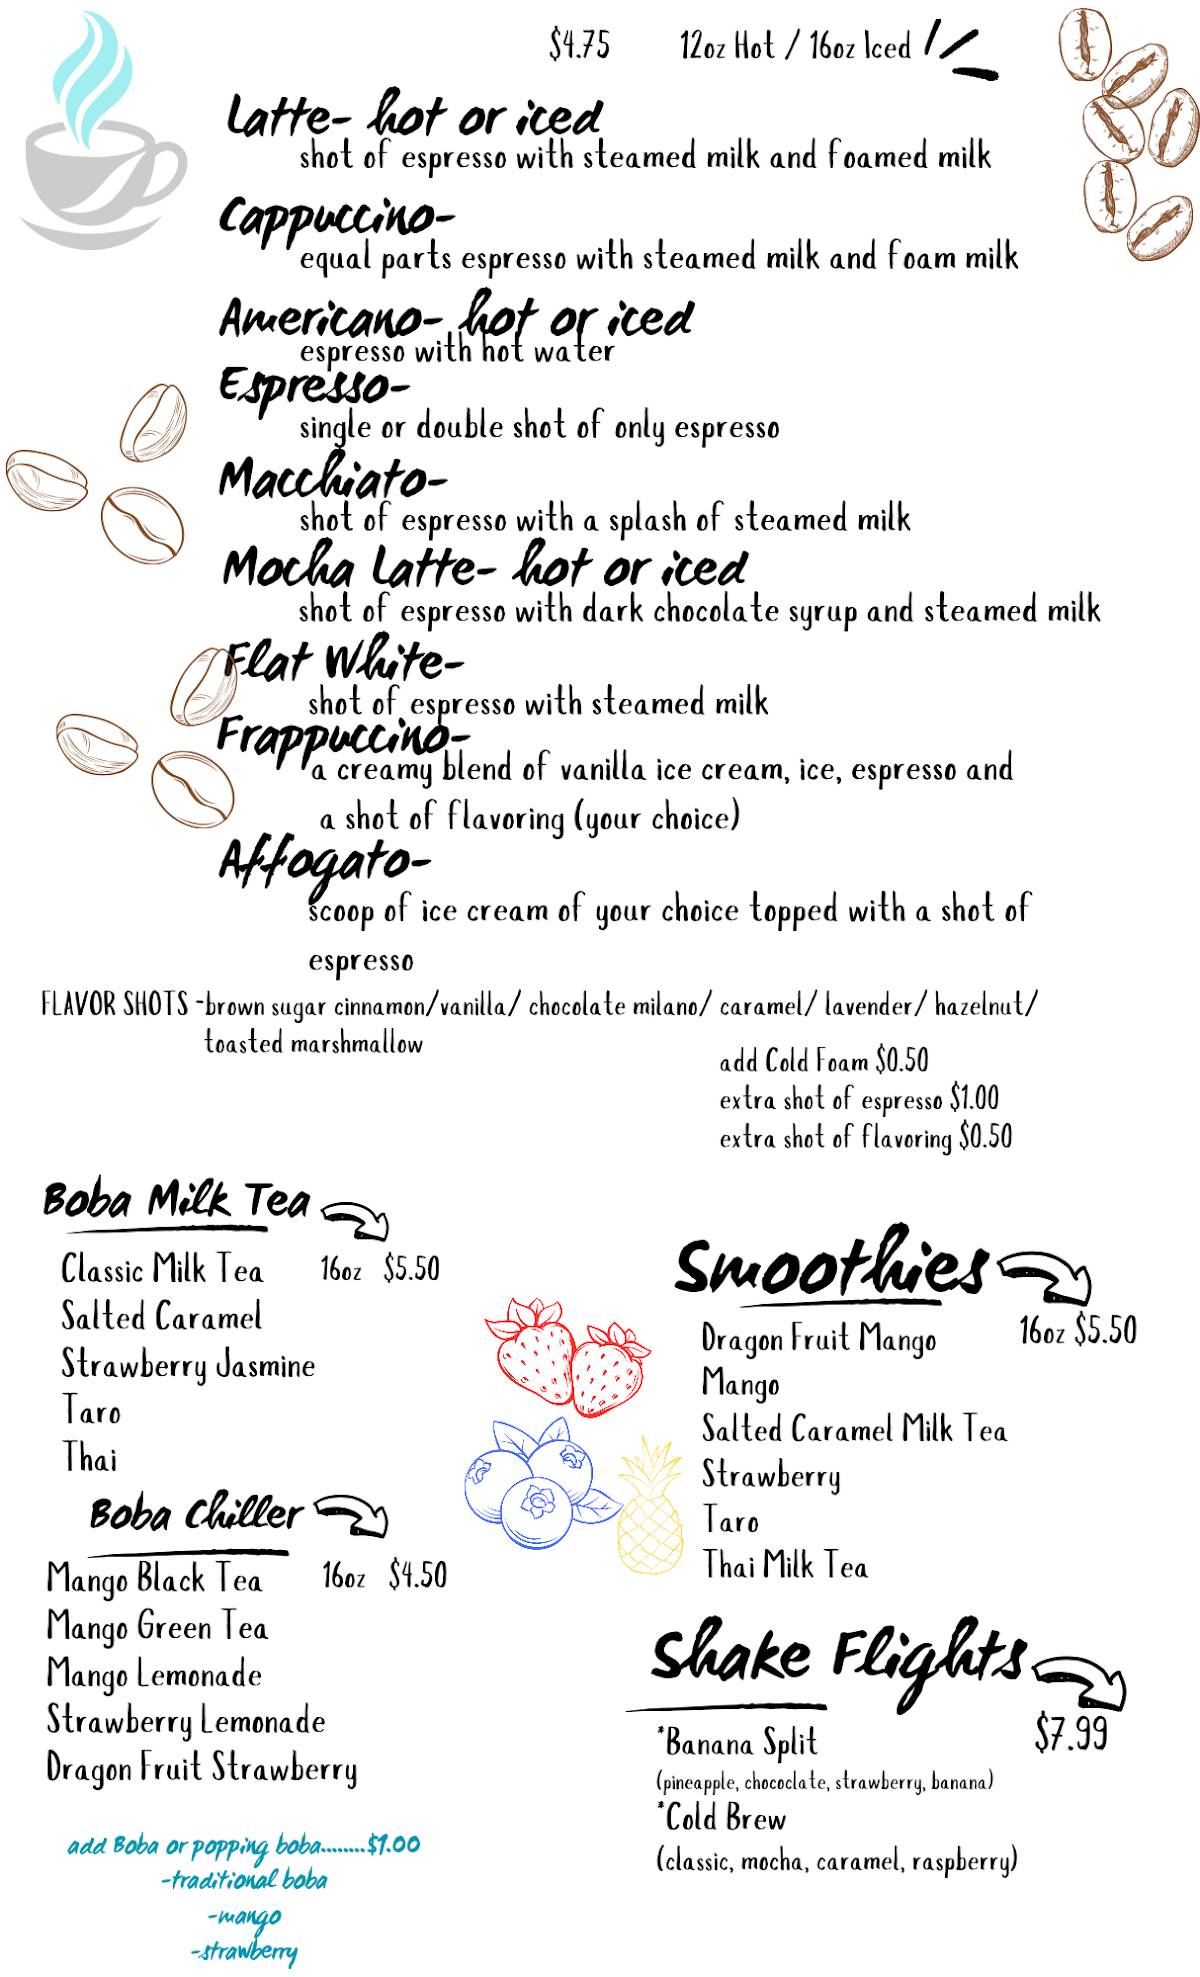 $4.75 12oz Hot / 16oz Iced
Latte- hot or iced
shot of espresso with steamed milk and foamed milk
Cappuccino-
equal parts espresso with steamed milk and foam milk
Americano- hot or iced
espresso with hot water
Espresso-
single or double shot of only espresso
Macchiato-
shot of espresso with a splash of steamed milk
Mocha Latte- hot or iced
shot of espresso with dark chocolate syrup and steamed milk
Flat White-
shot of espresso with steamed milk
Frappuccino-
a creamy blend of vanilla ice cream, ice, espresso and
a shot of flavoring (your choice)
Affogato-
scoop of ice cream of your choice topped with a shot of
espresso
FLAVOR SHOTS -brown sugar cinnamon/vanilla/ chocolate milano/ caramel/ lavender/ hazelnut/
toasted marshmallow
add Cold Foam $0.50
extra shot of espresso $1.00
extra shot of flavoring $0.50
Boba Milk Tea
Classic Milk Tea 16oz $5.50
Salted Caramel
Strawberry Jasmine
Taro
Thai
Boba Chiller
Mango Black Tea 16oz $4.50
Mango Green Tea
Mango Lemonade
Strawberry Lemonade
Dragon Fruit Strawberry
add Boba or popping boba........$1.00
-traditional boba
-mango
-strawberry
Smoothies
16oz $5.50
Dragon Fruit Mango
Mango
Salted Caramel Milk Tea
Strawberry
Taro
Thai Milk Tea
Shake Flights
$7.99
*Banana Split
(pineapple, chococlate, strawberry, banana)
*Cold Brew
(classic, mocha, caramel, raspberry)